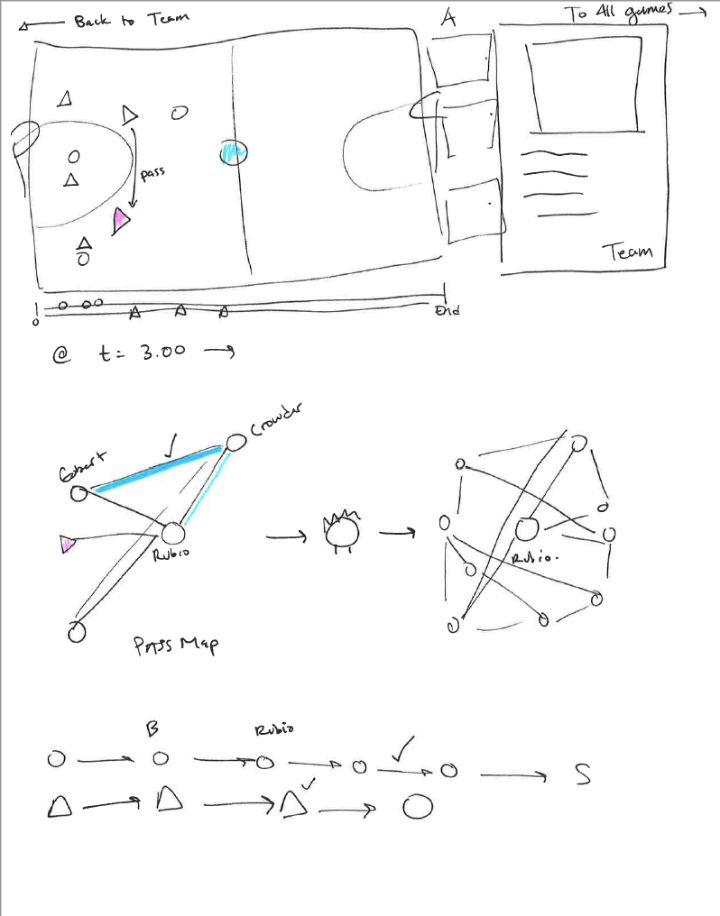 Back to Team
A
To All games
pass
Team
0
End
@ t = 3.00
Crowder
Gobert
Rubio
Rubio.
Pass Map
B
Rubio
S